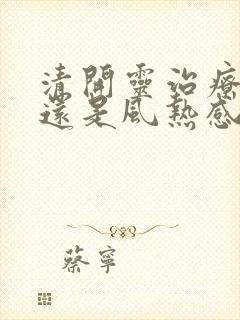 清開靈治療
還是風熱感
蔡寧